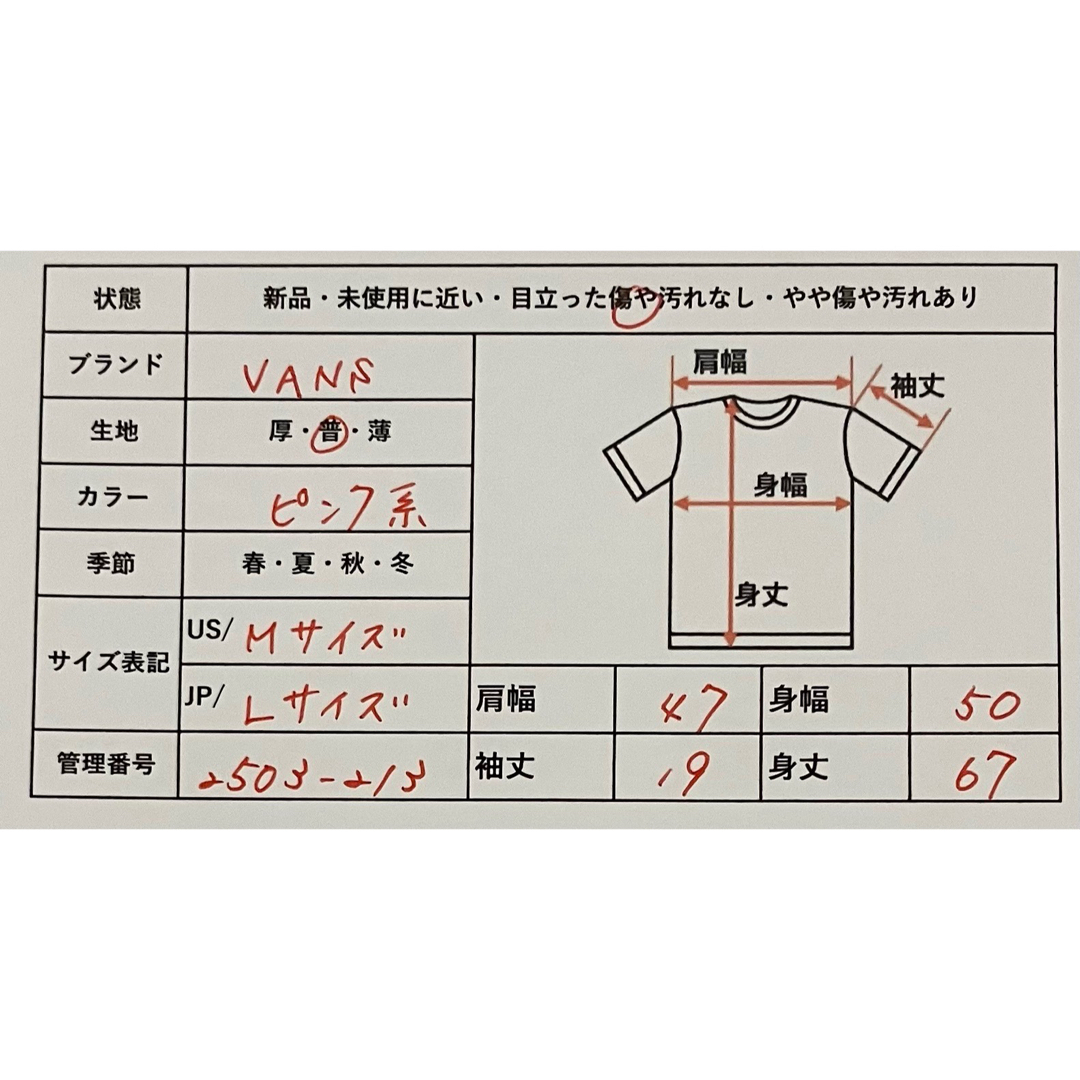 状態 新品・未使用に近い・目立った傷や汚れなし・やや傷や汚れあり
ブランド VANS
生地 厚・普・薄
カラー ピンク系
季節 春・夏・秋・冬
サイズ表記
US/ Mサイズ
JP/ Lサイズ
管理番号 2503-213
肩幅
袖丈
身幅
身丈
肩幅 47 身幅 50
袖丈 19 身丈 67